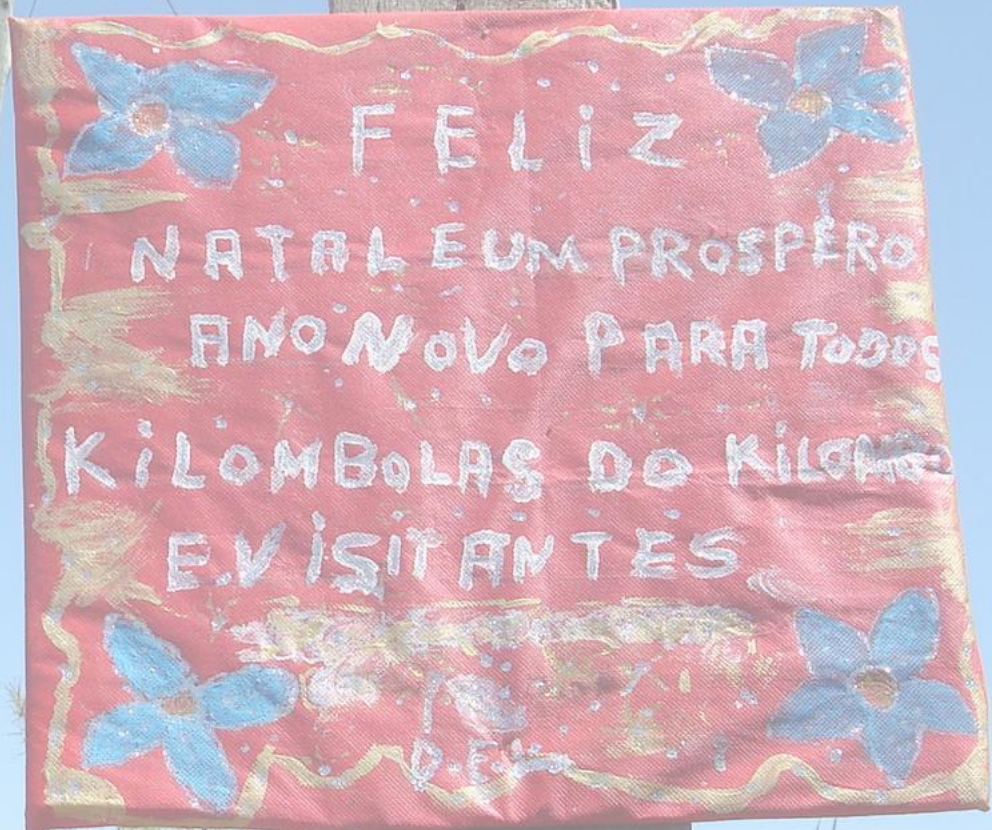 FELiZ
NATAL E UM PROSPÉRO
ANO NOVO PARA TODOS
KiLOMBOLAS DO
E.ViSITANTES